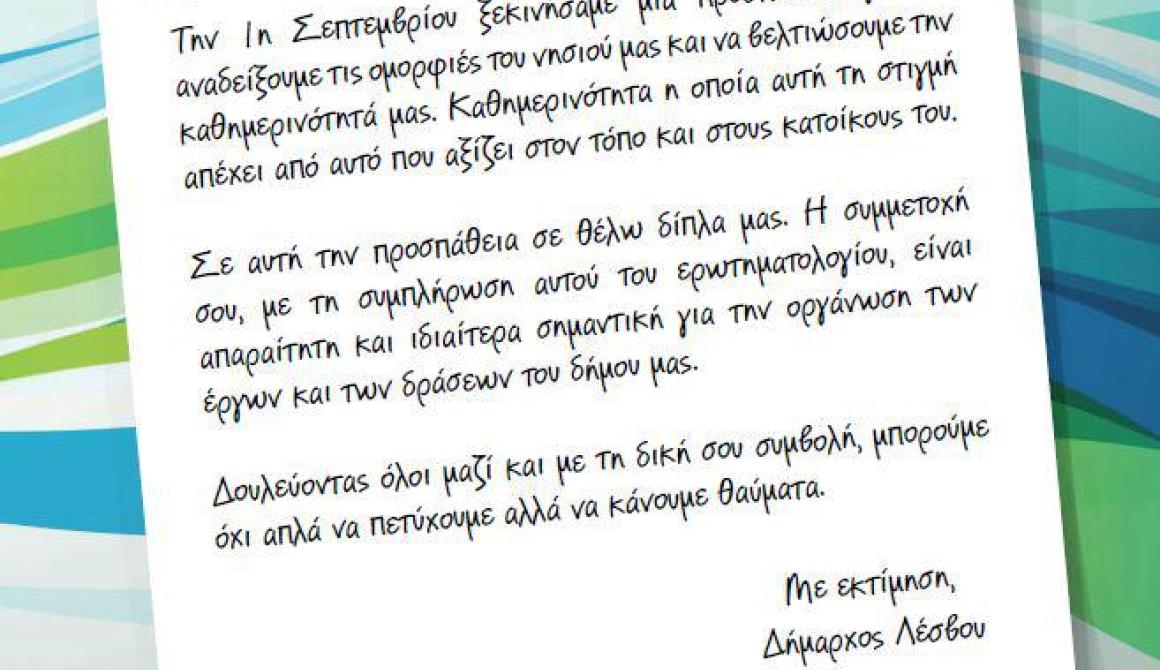 Την 1η Σεπτεμβρίου ξεκινήσαμε μια
αναδείξουμε τις ομορφιές του νησιού μας και να βελτιώσουμε την
καθημερινότητά μας. Καθημερινότητα η οποία αυτή τη στιγμή
απέχει από αυτό που αξίζει στον τόπο και στους κατοίκους του.
Σε αυτή την προσπάθεια σε θέλω δίπλα μας. Η συμμετοχή
σου, με τη συμπλήρωση αυτού του ερωτηματολογίου, είναι
απαραίτητη και ιδιαίτερα σημαντική για την οργάνωση των
έργων και των δράσεων του δήμου μας.
Δουλεύοντας όλοι μαζί και με τη δική σου συμβολή, μπορούμε
όχι απλά να πετύχουμε αλλά να κάνουμε θαύματα.
Με εκτίμηση,
Δήμαρχος Λέσβου